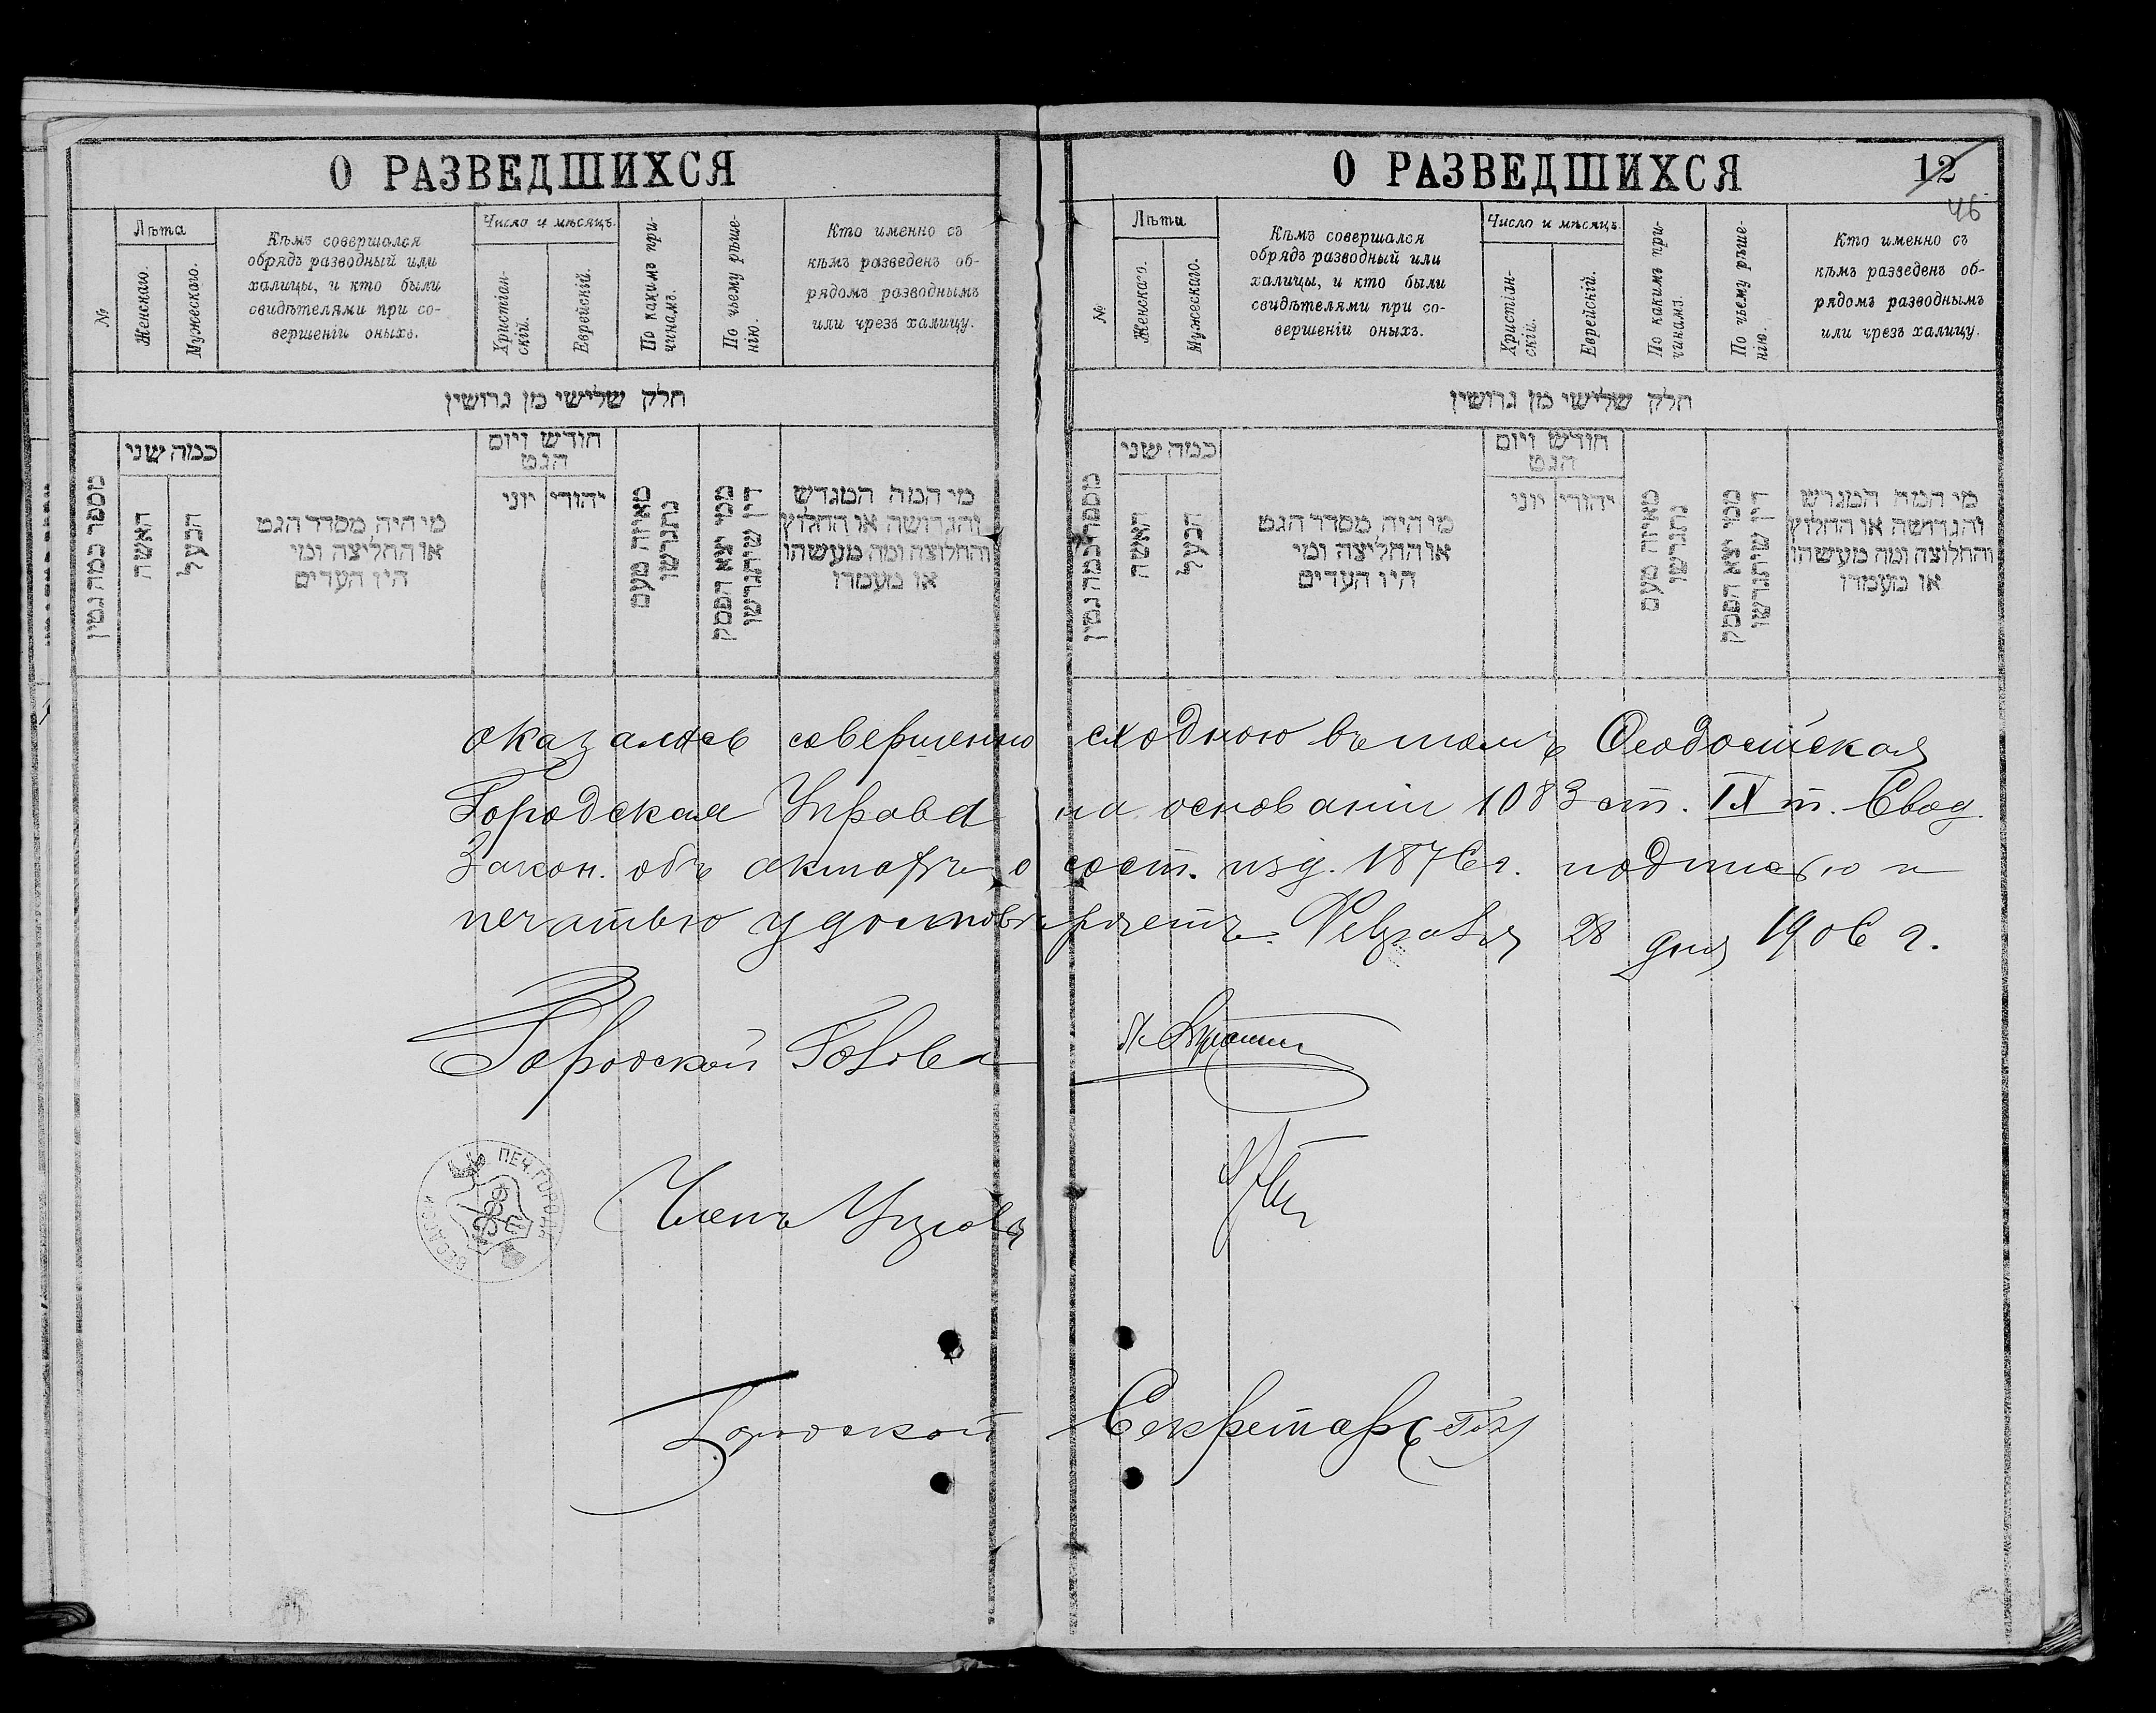 О РАЗВЕДШИХСЯ
№
Лѣта
Женскаго.
Мужескаго.
Кѣмъ совершался
обрядъ разводный или
халицы, и кто были
свидѣтелями при со-
вершеніи оныхъ.
Число и мѣсяцъ.
Христіан-
скій.
Еврейскій.
По какимъ при-
чинамъ.
По чьему рѣше-
нію.
Кто именно съ
кѣмъ разведенъ об-
рядомъ разводнымъ
или чрезъ халицу.
חלק שלישי מן גרושין
מספר כמה גטין
כמה שני
האשה
הבעל
מי היה מסדר הגט
או החליצה ומי
היו העדים
חודש ויום
הגט
יוני
יהודי
מאיזה טעם
נתגרשו
ממי יצא הפסק
דין שיתגרשו
מי המה המגרש
והגרושה או החלוץ
והחלוצה ומה מעשהו
או מעמדו
О РАЗВЕДШИХСЯ
12
46
№
Лѣта
Женскаго.
Мужескаго.
Кѣмъ совершался
обрядъ разводный или
халицы, и кто были
свидѣтелями при со-
вершеніи оныхъ.
Число и мѣсяцъ.
Христіан-
скій.
Еврейскій.
По какимъ при-
чинамъ.
По чьему рѣше-
нію.
Кто именно съ
кѣмъ разведенъ об-
рядомъ разводнымъ
или чрезъ халицу.
חלק שלישי מן גרושין
מספר כמה גטין
כמה שני
האשה
הבעל
מי היה מסדר הגט
או החליצה ומי
היו העדים
חודש ויום
הגט
יוני
יהודי
מאיזה טעם
נתגרשו
ממי יצא הפסק
דין שיתגרשו
מי המה המגרש
והגרושה או החלוץ
והחלוצה ומה מעשהו
או מעמדו
оказалась совершенно сходною въ томъ Ѳеодосійская
Городская Управа на основаніи 1083 ст. IX т. Свод.
Закон. объ актахъ о сост. изд. 1876 г. подписью и
печатью удостовѣряетъ. Февраля 28 дня 1906 г.
Городской Голова
ПЕЧ. ГОРОД.
Членъ Управы
Городской Секретарь